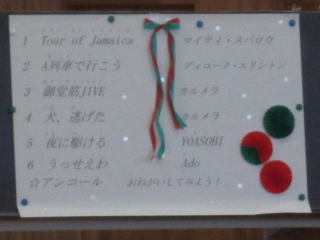 1 Tour of Jamaica マイティ・スパロウ
2 A列車で行こう ディユーク・エリントン
3 御堂筋JIVE カルメラ
4 犬、逃げた カルメラ
5 夜に駆ける YOASOBI
6 うっせえわ Ado
☆アンコール おねがいしてみよう!